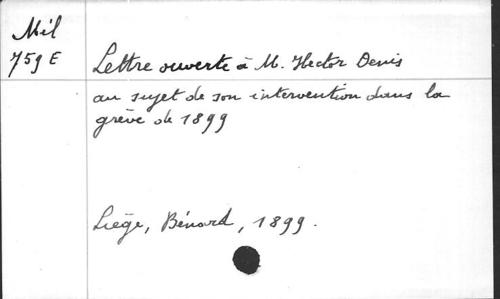 Mél
759 E
Lettre ouverte à M. Hector Denis
au sujet de son intervention dans la
grève de 1899
Liège, Bénard, 1899.